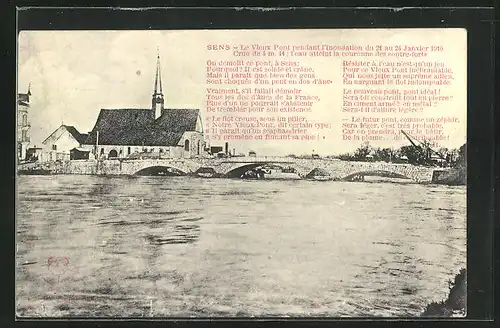 SENS – Le Vieux Pont pendant l'inondation du 21 au 24 Janvier 1910
Crue de 4 m. 14 ; l'eau atteint la couronne des contre-forts
On démolit ce pont, à Sens;
Pourquoi? Il est solide et crâne,
Mais il paraît que bien des gens
Sont choqués d'un pont en dos d'âne
Vraiment, s'il fallait démolir
Tous les dos d'ânes de la France,
Plus d'un ne pourrait s'abstenir
De trembler pour son existence.
« Le flot creuse, sous un pilier,
Notre Vieux-Pont, dit certain type;
« Il paraît qu'un scaphandrier
« S'y promène en fumant sa pipe ! »
Résister à l'eau n'est qu'un jeu
Pour ce Vieux Pont inébranlable,
Qui nous jette un suprême adieu,
En narguant le flot indomptable.
Le nouveau pont, pont idéal !
Sera-t-il construit tout en pierre?
En ciment armé? en métal ?
Sera-t-il d'allure légère ?
– Le futur pont, comme un zéphir,
Sera léger, c'est là le hic,
Car on prendra, pour le bâtir,
De la plume....